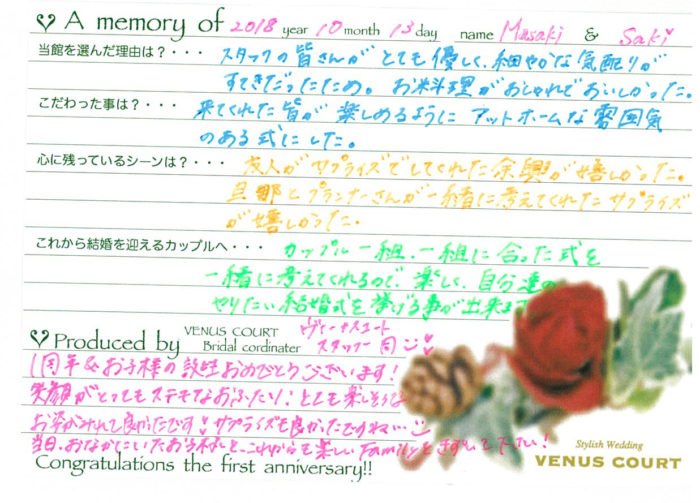 A memory of 2018 year 10 month 13 day name Masaki & Saki
当館を選んだ理由は？・・・ スタッフの皆さんがとても優しく、細やかな気配りが
すてきだったため。お料理がおしゃれでおいしかった。
こだわった事は？・・・ 来てくれた皆が楽しめるようにアットホームな雰囲気
のある式にした。
心に残っているシーンは？・・・ 友人がサプライズでしてくれた余興が嬉しかった。
旦那とプランナーさんが一緒に考えてくれたサプライズ
が嬉しかった。
これから結婚を迎えるカップルへ・・・ カップル一組、一組に合った式を
一緒に考えてくれるので、楽しく、自分達の
やりたい結婚式を挙げる事が出来ます
Produced by VENUS COURT Bridal cordinater ヴィーナスコート スタッフ一同
1周年&お子様の誕生おめでとうございます!
笑顔がとってもステキなおふたり!とても楽しそうな
お姿がみれて良かったです!サプライズも良かったですね
当日、おなかにいたお子様と、これからも楽しいFamilyをきずいて下さい!
Congratulations the first anniversary!!
Stylish Wedding
VENUS COURT